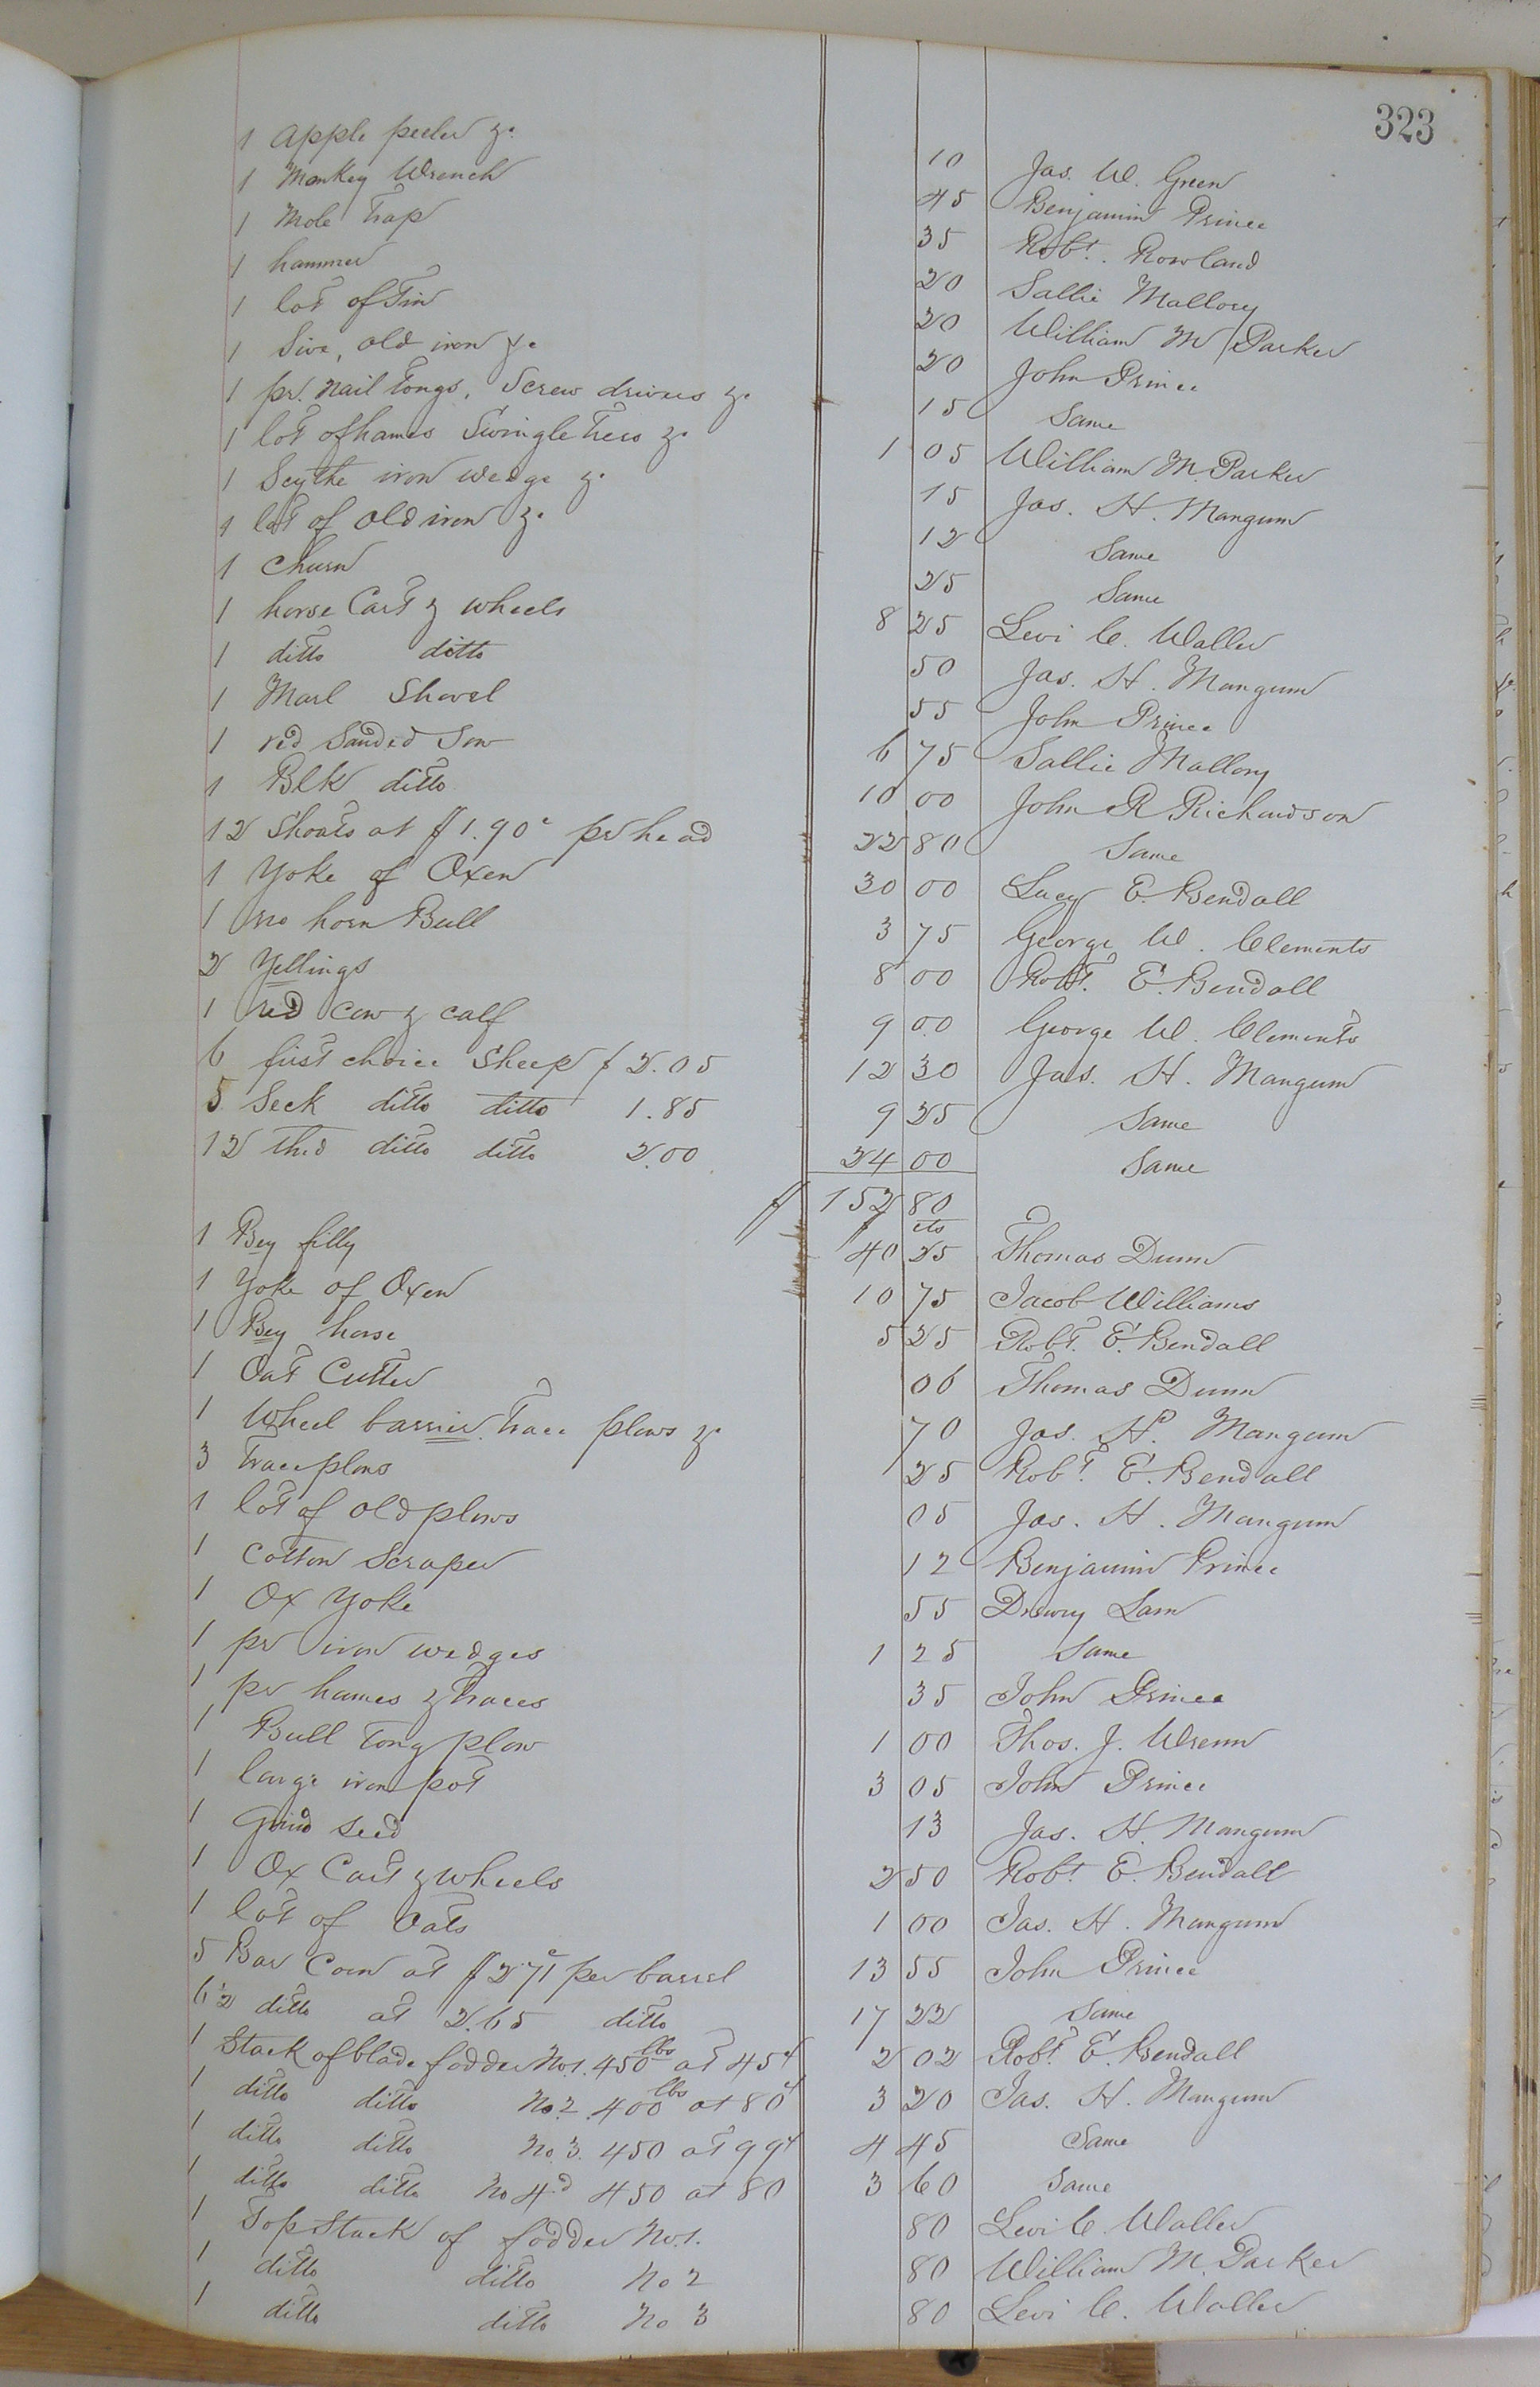 323
1 Apple peeler &c. 10 Jas. W. Green
1 Monkey Wrench 45 Benjamin Prince
1 Mole Trap 35 Robt. Rowland
1 hammer 20 Sallie Mallory
1 lot of Tin 20 William M Parker
1 Sive, old iron &c 20 John Prince
1 pr. Nail Tongs, Screw drivers &c. 15 Same
1 lot of hames Swingle Trees &c. 1 05 William M. Parker
1 Scythe iron wedge &c. 15 Jas. H. Mangum
1 lot of old iron &c. 12 Same
1 Churn 25 Same
1 horse Cart & wheels 8 25 Levi C. Waller
1 ditto ditto 50 Jas. H. Mangum
1 Marl Shovel 55 John Prince
1 red Sanded Sow 6 75 Sallie Mallory
1 Blk ditto 10 00 John R Richardson
12 Shoats at $1.90c pr head 22 80 Same
1 Yoke of Oxen 30 00 Lucy E. Bendall
1 no horn Bull 3 75 George W. Clements
2 Yellings 8 00 Robt. E. Bendall
1 red cow & calf 9 00 George W. Clements
6 first choice Sheep $2.05 12 30 Jas. H. Mangum
5 Seck ditto ditto 1.85 9 25 Same
12 thrd ditto ditto 2.00 24 00 Same
$ 152 80
$ cts
1 Bey filly 40 25 Thomas Dunn
1 Yoke of Oxen 10 75 Jacob Williams
1 Bey horse 5 25 Robt. E. Bendall
1 Oat Cutter 06 Thomas Dunn
1 Wheel barrier Trace plows &c. 70 Jas. H. Mangum
3 Trace plows 25 Robt. E. Bendall
1 lot of old plows 05 Jas. H. Mangum
1 Cotton Scraper 12 Benjamin Prince
1 Ox Yoke 55 Drewry Lam
1 pr iron wedges 1 25 Same
1 pr hames & Traces 35 John Prince
1 Bull Tong plow 1 00 Thos. J. Wrenn
1 large iron pot 3 05 John Prince
1 Grind seed 13 Jas. H. Mangum
1 Ox Cart & wheels 2 50 Robt E. Bendall
1 lot of Oats 1 00 Jas. H. Mangum
5 Bar Corn at $2 71c per barrel 13 55 John Prince
6½ ditto at 2.65 ditto 17 22 Same
1 Stack of blade fodder No1. 450 lbs at 45c 2 02 Robt. E. Bendall
1 ditto ditto No2. 400 lbs at 80c 3 20 Jas. H. Mangum
1 ditto ditto No. 3. 450 at 99c 4 45 Same
1 ditto ditto No 4d 450 at 80 3 60 Same
1 Top Stack of fodder No.1. 80 Levi C. Waller
1 ditto ditto No 2 80 William M. Parker
1 ditto ditto No 3 80 Levi C. Waller